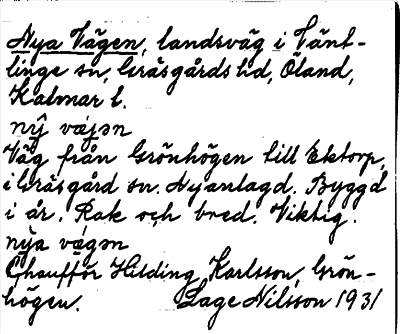 Nya Vägen, landsväg i Vänt-
linge sn, Gräsgårds hd, Öland,
Kalmar l.
nŷ vájən
Väg från Grönhögen till Ektorp,
i Gräsgård sn. Nyanlagd. Byggd
i år. Rak och bred. Viktig.
nya vágən
Chaufför Hilding Karlsson, Grön-
högen. Lage Nilsson 1931